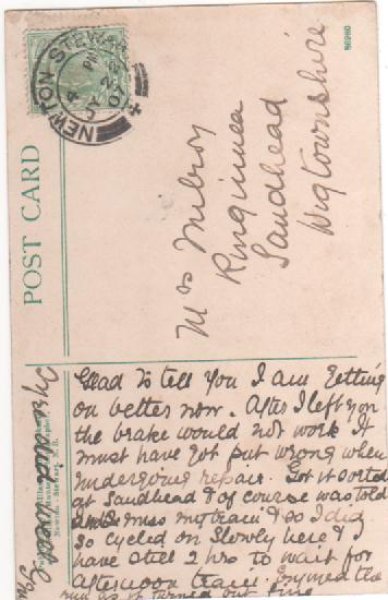 NEWTON STEWART
4 PM
JY 29
07
POST CARD
Mrs Milroy
Ringuinea
Sandhead
Wigtownshire
Glad to tell you I am getting
on better now. After I left you
the brake would not work It
must have got put wrong when
undergoing repair. Got it sorted
at Sandhead & of course was told
miss my train & so I did
so cycled on slowly here & I
have still 2 hrs to wait for
afternoon train. Enjoyed the
run as it turned out fine